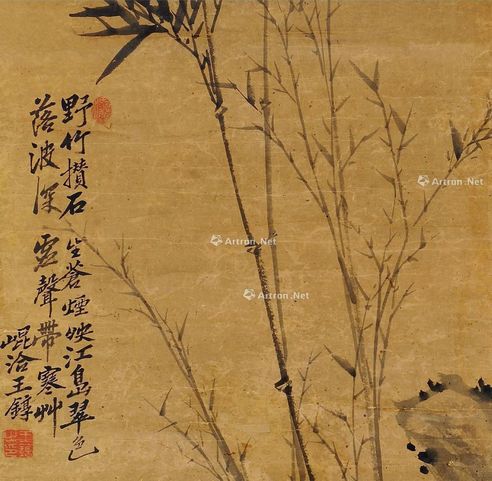 野竹攢石生蒼煙映江島翠色
落波深虛聲帶寒艸
崐洽王錞
Artron.Net
Artron.Net
Artron.Net
Artron.Net